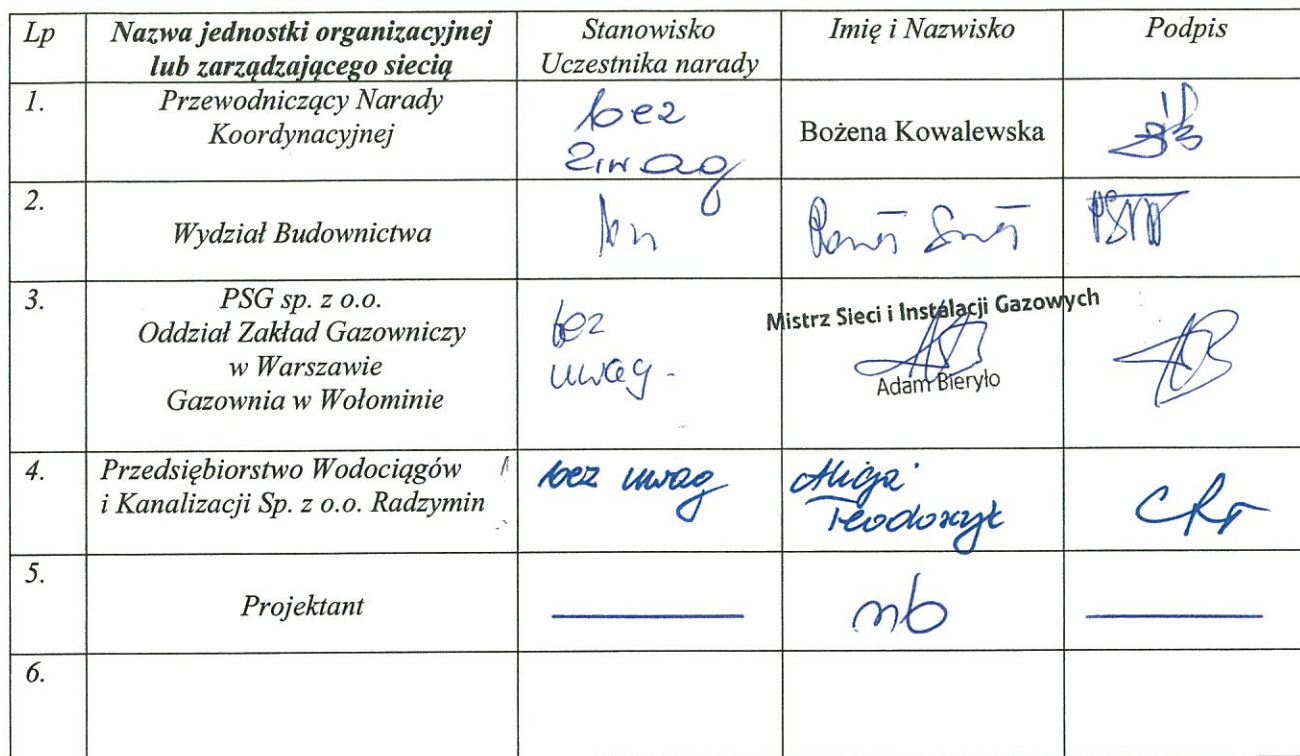 Lp
Nazwa jednostki organizacyjnej
lub zarządzającego siecią
Stanowisko
Uczestnika narady
Imię i Nazwisko
Podpis
1.
Przewodniczący Narady
Koordynacyjnej
bez
uwag
Bożena Kowalewska
2.
Wydział Budownictwa
3.
PSG sp. z o.o.
Oddział Zakład Gazowniczy
w Warszawie
Gazownia w Wołominie
bez
uwag.
Mistrz Sieci i Instalacji Gazowych
Adam Bieryło
4.
Przedsiębiorstwo Wodociągów
i Kanalizacji Sp. z o.o. Radzymin
bez uwag
Alicja
Teodorczyk
5.
Projektant
nb
6.